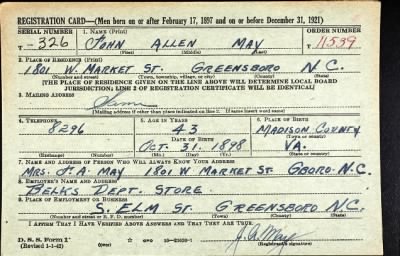 REGISTRATION CARD—(Men born on or after February 17, 1897 and on or before December 31, 1921)
SERIAL NUMBER 1. NAME (Print) ORDER NUMBER
T- 326 JOHN ALLEN MAY 11539
(First) (Middle) (Last)
2. PLACE OF RESIDENCE (Print)
1801 W. MARKET ST. GREENSBORO N.C.
(Number and street) (Town, township, village, or city) (County) (State)
[THE PLACE OF RESIDENCE GIVEN ON THE LINE ABOVE WILL DETERMINE LOCAL BOARD
JURISDICTION; LINE 2 OF REGISTRATION CERTIFICATE WILL BE IDENTICAL]
3. MAILING ADDRESS
Same
[Mailing address if other than place indicated on line 2. If same insert word same]
4. TELEPHONE 5. AGE IN YEARS 6. PLACE OF BIRTH
8296 43 MADISON COUNTY
DATE OF BIRTH (Town or county)
OCT. 31. 1898 VA.
(Mo.) (Day) (Yr.) (State or country)
7. NAME AND ADDRESS OF PERSON WHO WILL ALWAYS KNOW YOUR ADDRESS
MRS. J. A. MAY 1801 W MARKET ST. GBORO N.C.
8. EMPLOYER'S NAME AND ADDRESS
BELKS DEPT. STORE
9. PLACE OF EMPLOYMENT OR BUSINESS
S. ELM ST. GREENSBORO N.C.
(Number and street or R. F. D. number) (Town) (County) (State)
I AFFIRM THAT I HAVE VERIFIED ABOVE ANSWERS AND THAT THEY ARE TRUE.
D. S. S. Form 1
(Revised 1-1-42) GPO 16—21630-1 J. A. May
(Registrant's signature)